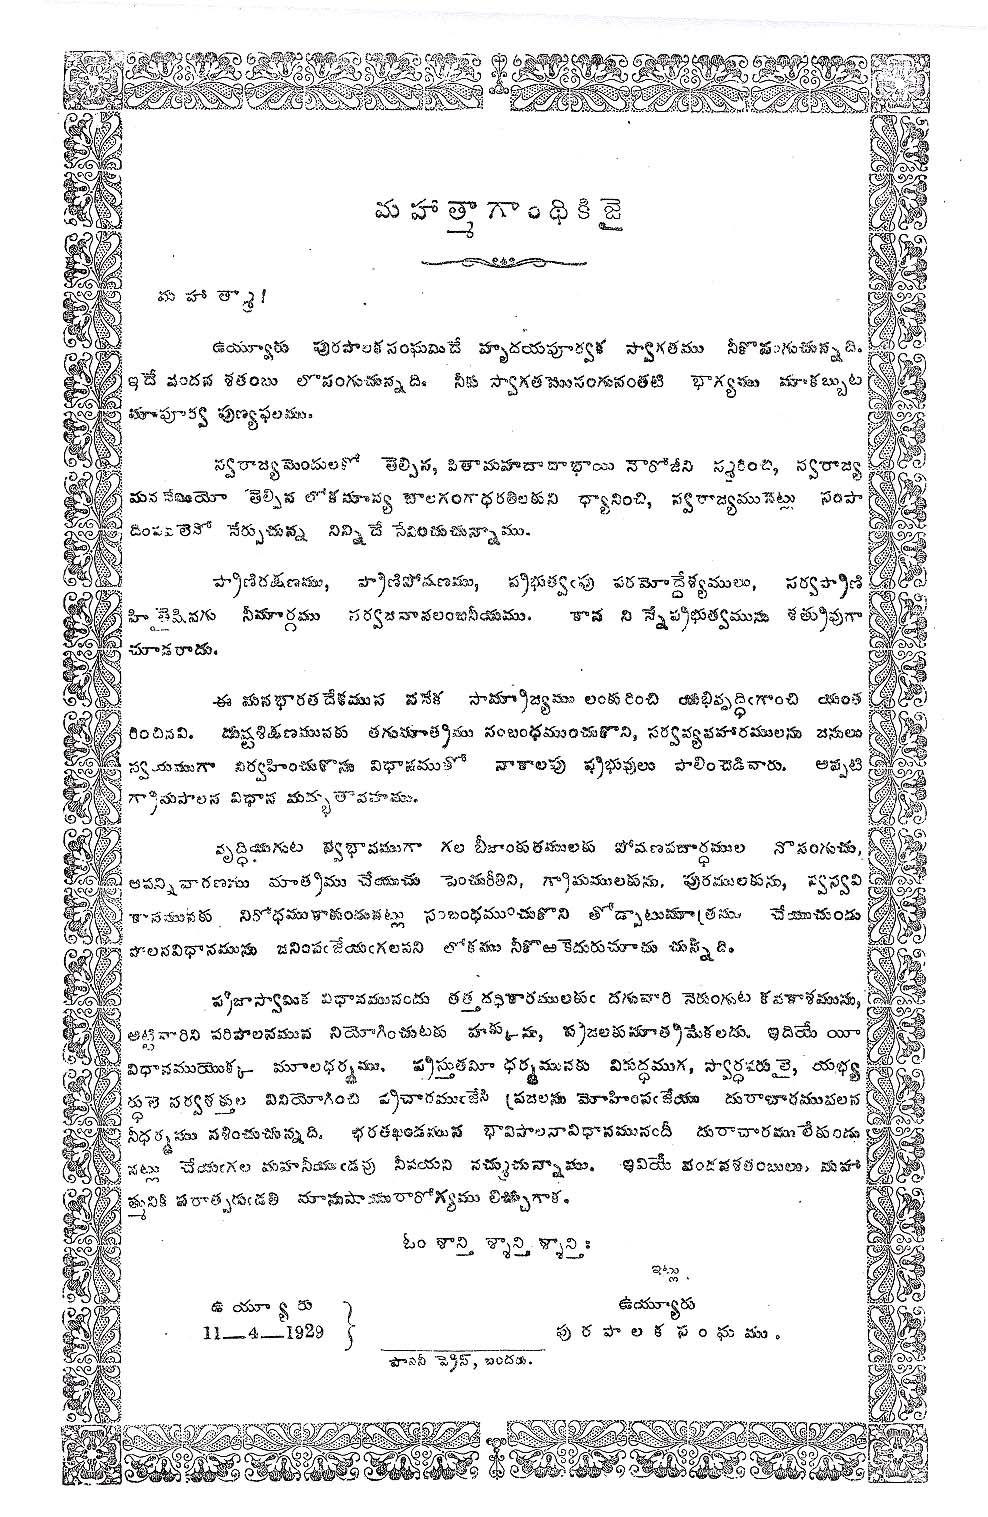 మహాత్మాగాంధికిజై
మహాత్మా!
ఉయ్యూరు పురపాలకసంఘమిదే హృదయపూర్వక స్వాగతము నీకొసంగుచున్నది.
ఇదే వందన శతంబు లొసంగుచున్నది. నీకు స్వాగతమొసంగునంతటి భాగ్యము మాకబ్బుట
మాపూర్వ పుణ్యఫలము.
స్వరాజ్యమెందులకో తెల్పిన, పితామహదాదాభాయి నౌరోజీని స్మరించి, స్వరాజ్య
మననేమియో తెల్పిన లోకమాన్య బాలగంగాధరతిలకుని ధ్యానించి, స్వరాజ్యమునెట్లు సంపా
దింపవలెనో నేర్పుచున్న నిన్నిదే సేవించుచున్నాము.
ప్రాణిరక్షణము, ప్రాణిపోషణము, ప్రభుత్వఁపు పరమోద్దేశ్యములు, సర్వప్రాణి
హితైషినగు నీమార్గము సర్వజనావలంబనీయము. కాన నిన్నేప్రభుత్వమును శత్రువుగా
చూడరాదు.
ఈ మనభారతదేశమున ననేక సామ్రాజ్యము లంకురించి యభివృద్ధిఁగాంచి యంత
రించినవి. దుష్టశిక్షణమునకు తగుమాత్రము సంబంధముంచుకొని, సర్వవ్యవహారములను జనులు
స్వయముగా నిర్వహించుకొను విధానముతో నాకాలపు ప్రభువులు పాలించెడివారు. అప్పటి
గ్రామపాలన విధాన మద్భుతావహము.
వృద్ధియగుట స్వభావముగా గల బీజాంకురములకు పోషణపదార్థముల నొసంగుచు,
ఆపన్నివారణము మాత్రము చేయుచు పెంచురీతిని, గ్రామములకును, పురములకును, స్వస్వవి
కాసమునకు నిరోధముకాకుండునట్లు సంబంధముంచుకొని తోడ్పాటుమాత్రము చేయుచుండు
పాలనవిధానమును జనింపఁజేయఁగలవని లోకము నీకొఱకెదురుచూచు చున్నది.
ప్రజాస్వామిక విధానమునందు తత్తదధికారములకుఁ దగువారి నెరుంగుట కవకాశమును,
అట్టివారిని పరిపాలనమున నియోగించుటకు హక్కును, ప్రజలకుమాత్రమేకలదు. ఇదియే యీ
విధానముయొక్క మూలధర్మము. ప్రస్తుతమీ ధర్మమునకు విరుద్ధముగ, స్వార్థపరులై, యభ్య
ర్థులె సర్వశక్తుల వినియోగించి ప్రచారముఁజేసి ప్రజలను మోహింపఁజేయు దురాచారమువలన
నీధర్మము నశించుచున్నది. భరతఖండమున భావిపాలనావిధానమునందీ దురాచారము లేకుండు
నట్లు చేయఁగల మహనీయుఁడవు నీవయని నమ్ముచున్నాము. ఇవియే వందనశతంబులు, మహా
త్మునికి పరాత్పరుఁడతి మానుషాయురారోగ్యము లిచ్చుగాక.
ఓం శాన్తి శ్శాన్తి శ్శాన్తిః
ఇట్లు
ఉయ్యూరు
11—4—1929
ఉయ్యూరు
పురపాలకసంఘము.
పానినీ ప్రెస్, బందరు.